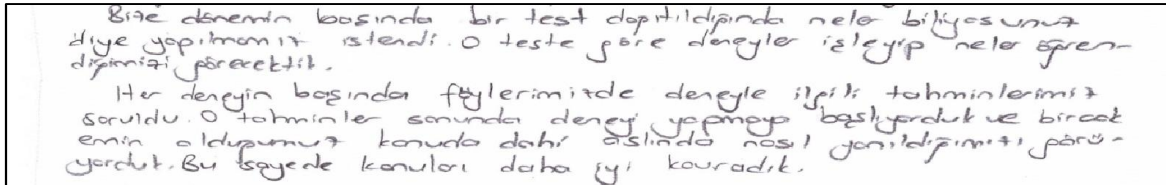 Bize dönemin başında bir test dağıtıldığında neler biliyosunuz
diye yapılmamız istendi. O teste göre deneyler işleyip neler öğren-
diğimizi görecektik.
Her deneyin başında föylerimizde deneyle ilgili tahminlerimiz
soruldu. O tahminler sonunda deneyi yapmaya başlıyorduk ve bircok
emin olduğumuz konuda dahi aslında nasıl yanıldığımızı görü-
yorduk. Bu sayede konuları daha iyi kavradık.